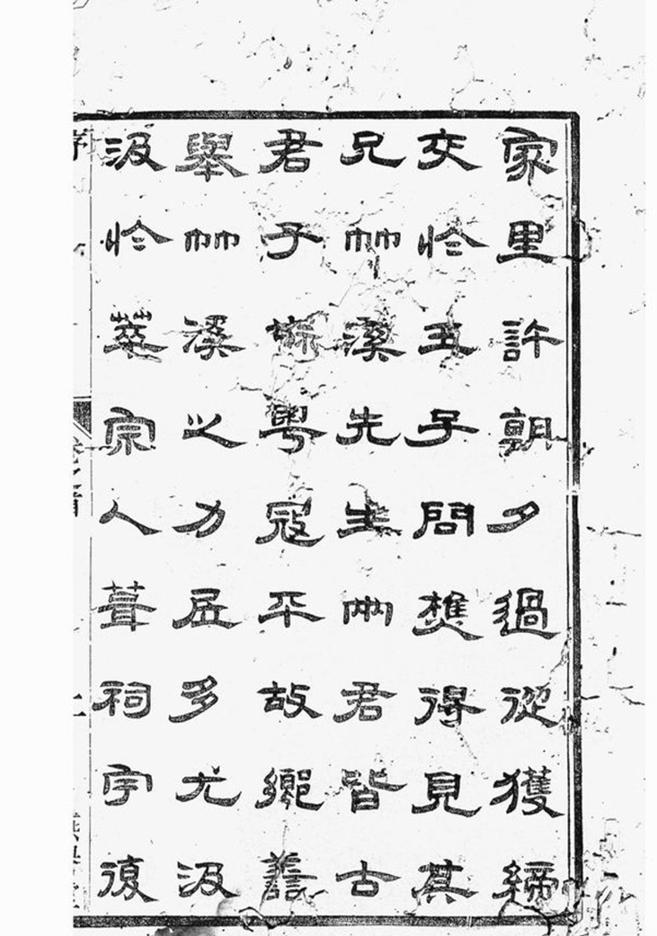 家里許朝夕過從獲締
交於五子問樵得見其
兄竹溪先生兩君皆古
君子粵寇平故鄉善
舉竹溪之力居多尤汲
汲於萃宗人葺祠宇復